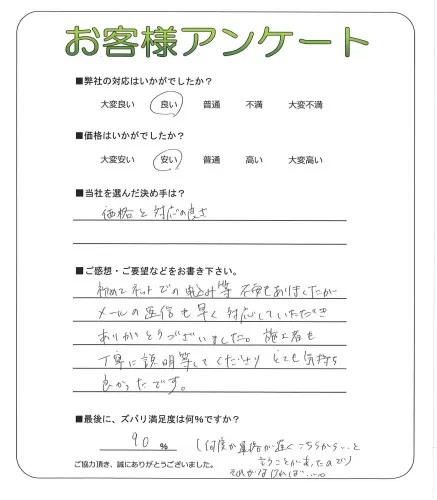 お客様アンケート
■弊社の対応はいかがでしたか？
大変良い 良い 普通 不満 大変不満
■価格はいかがでしたか？
大変安い 安い 普通 高い 大変高い
■当社を選んだ決め手は？
価格と対応の良さ
■ご感想・ご要望などをお書き下さい。
初めてネットでの申込み等 不安もありましたが
メールの返信も早く対応していただき
ありがとうございました。施工者も
丁寧に説明等してくださり とても気持ち
良かったです。
■最後に、ズバリ満足度は何%ですか？
90 %
(何度か連絡が遅くこちらから…と
言うことがあったので)
それがなければ…。
ご協力頂き、誠にありがとうございました。